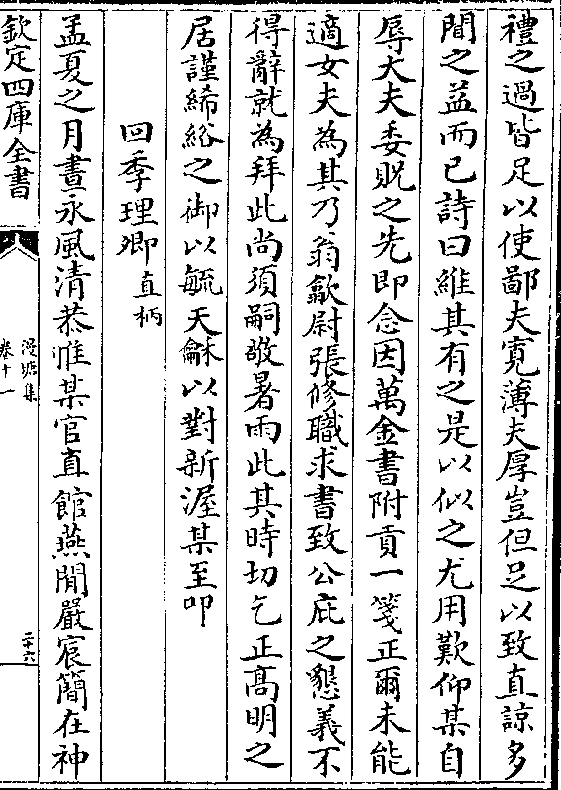 禮之過皆足以使鄙夫寛薄夫厚豈但足以致直諒多
聞之益而已詩曰維其有之是以似之尤用歎仰某自
辱大夫委貺之先即念因萬金書附貢一箋正爾未能
適女夫為其乃翁歙尉張修職求書致公庇之懇義不
得辭就為拜此尚須嗣敬暑雨此其時切乞正髙明之
居謹絺綌之御以毓天龢以對新渥某至叩
回季理卿直柄
孟夏之月晝永風清恭惟某官直館燕閒嚴宸簡在神
欽定四庫全書
漫塘集
卷十一
二十六